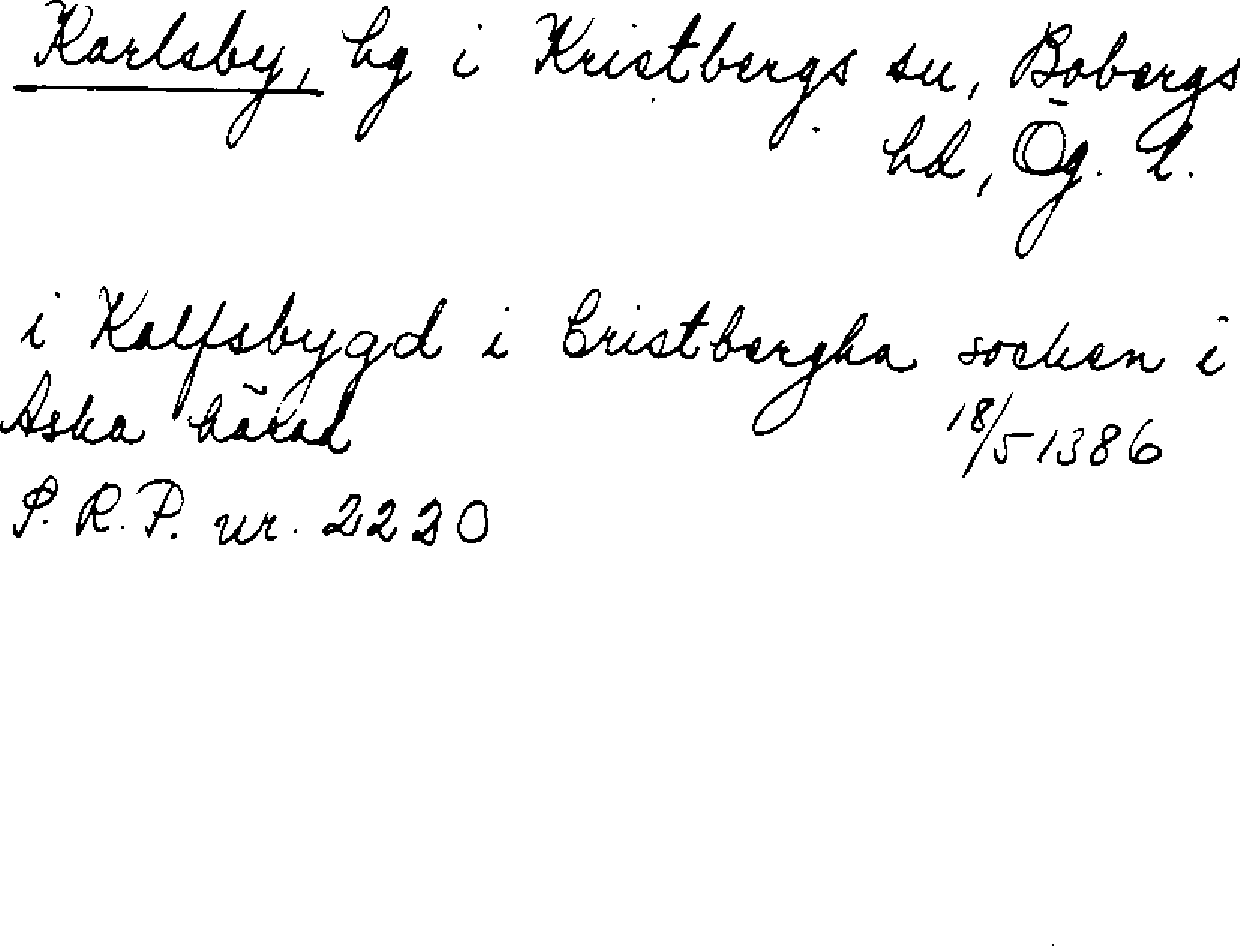 Karlsby, hg i Kristbergs sn, Bobergs
hd, Ög. l.
i Kalfsbygd i Cristbergha socken i
Aska härad 18/5 1386
S. R. P. nr. 2220